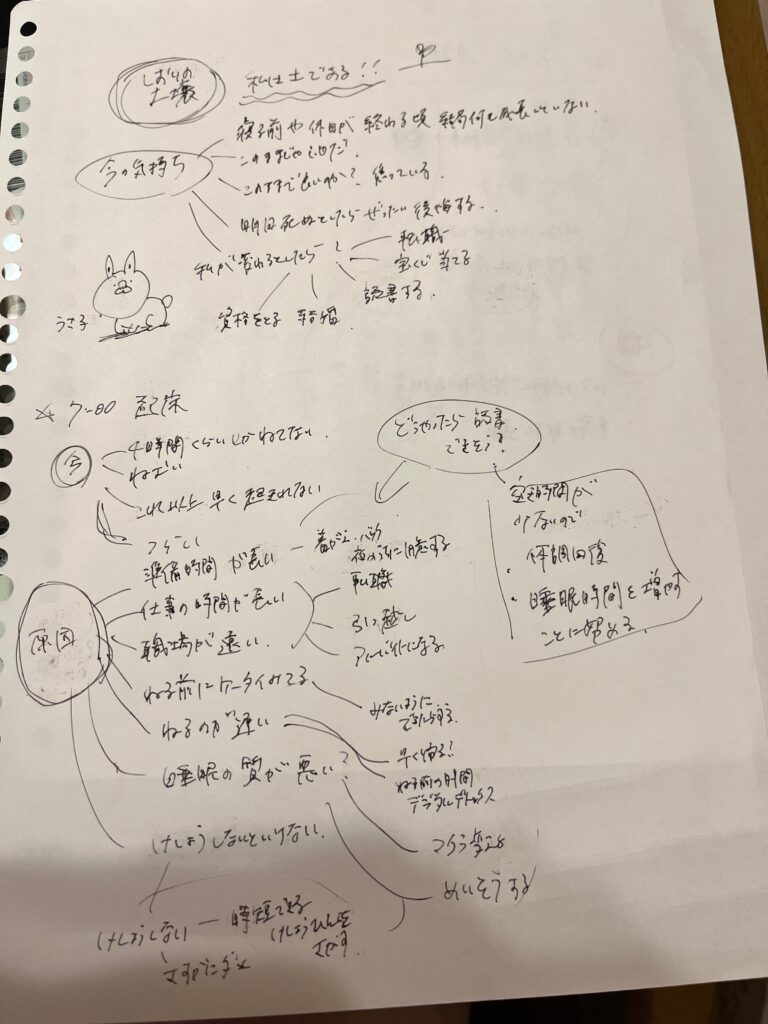 しおりの
土壌
私は土である!!
今の気持ち
寝る前や休日が終わる頃 結局何も成長していない.
このままじゃだめだ.
このままで良いのか? 焦っている.
明日死ぬとしたらぜったい後悔する.
私が変わるとしたら?
転職
宝くじ当てる
読書する.
資格をとる
うさ子
7:00 起床
今
4時間くらいしかねてない.
ねむい
これ以上早く起きれない
つらい
どうやったら読書
できそう?
空き時間が
少ないので
・体調回復
・睡眠時間を増やす
ことに努める.
原因
準備時間が長い
夜のうちに用意する
仕事の時間が長い
転職
職場が遠い.
引っ越し
アルバイトになる
ねる前にケータイみてる
みないように
ねるのが遅い
早く帰る?
ねる前の時間
デジタルデトックス
睡眠の質が悪い?
マクラ変える
めいそうする
けしょうしないといけない.
けしょうしない
時短できる
けしょうひんを
さがす
さすがにダメ